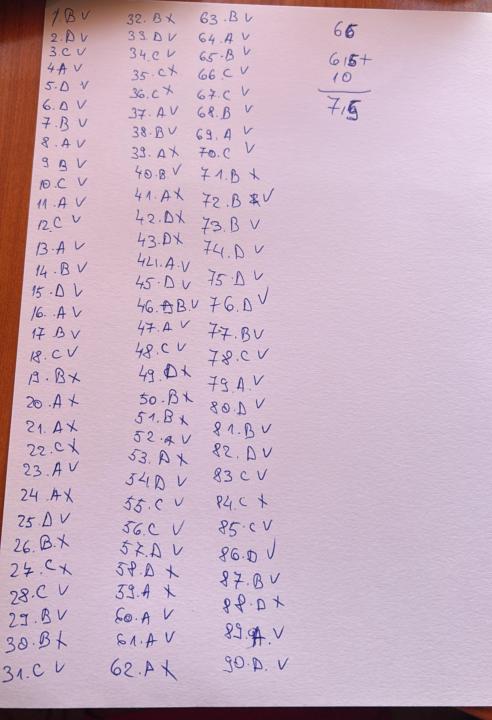 1.B V
2.D V
3.C V
4.A V
5.D V
6.D V
7.B V
8.A V
9.B V
10.C V
11.A V
12.C V
13.A V
14.B V
15.D V
16.A V
17.B V
18.C V
19.B X
20.A X
21.A X
22.C X
23.A V
24.A X
25.D V
26.B X
27.C X
28.C V
29.B V
30.B X
31.C V
32.B X
33.D V
34.C V
35.C X
36.C X
37.A V
38.B V
39.A X
40.B V
41.A X
42.D X
43.D X
44.A V
45.D V
46.B V
47.A V
48.C V
49.D X
50.B X
51.B X
52.A V
53.D X
54.D V
55.C V
56.C V
57.D V
58.D X
59.A X
60.A V
61.A V
62.A X
63.B V
64.A V
65.B V
66 C V
67.C V
68.B V
69.A V
70.C V
71.B X
72.B V
73.B V
74.D V
75.D V
76.D V
77.B V
78.C V
79.A V
80.D V
81.B V
82.D V
83 C V
84.C X
85.C V
86.D V
87.B V
88.D X
89.A.V
90.D.V
10